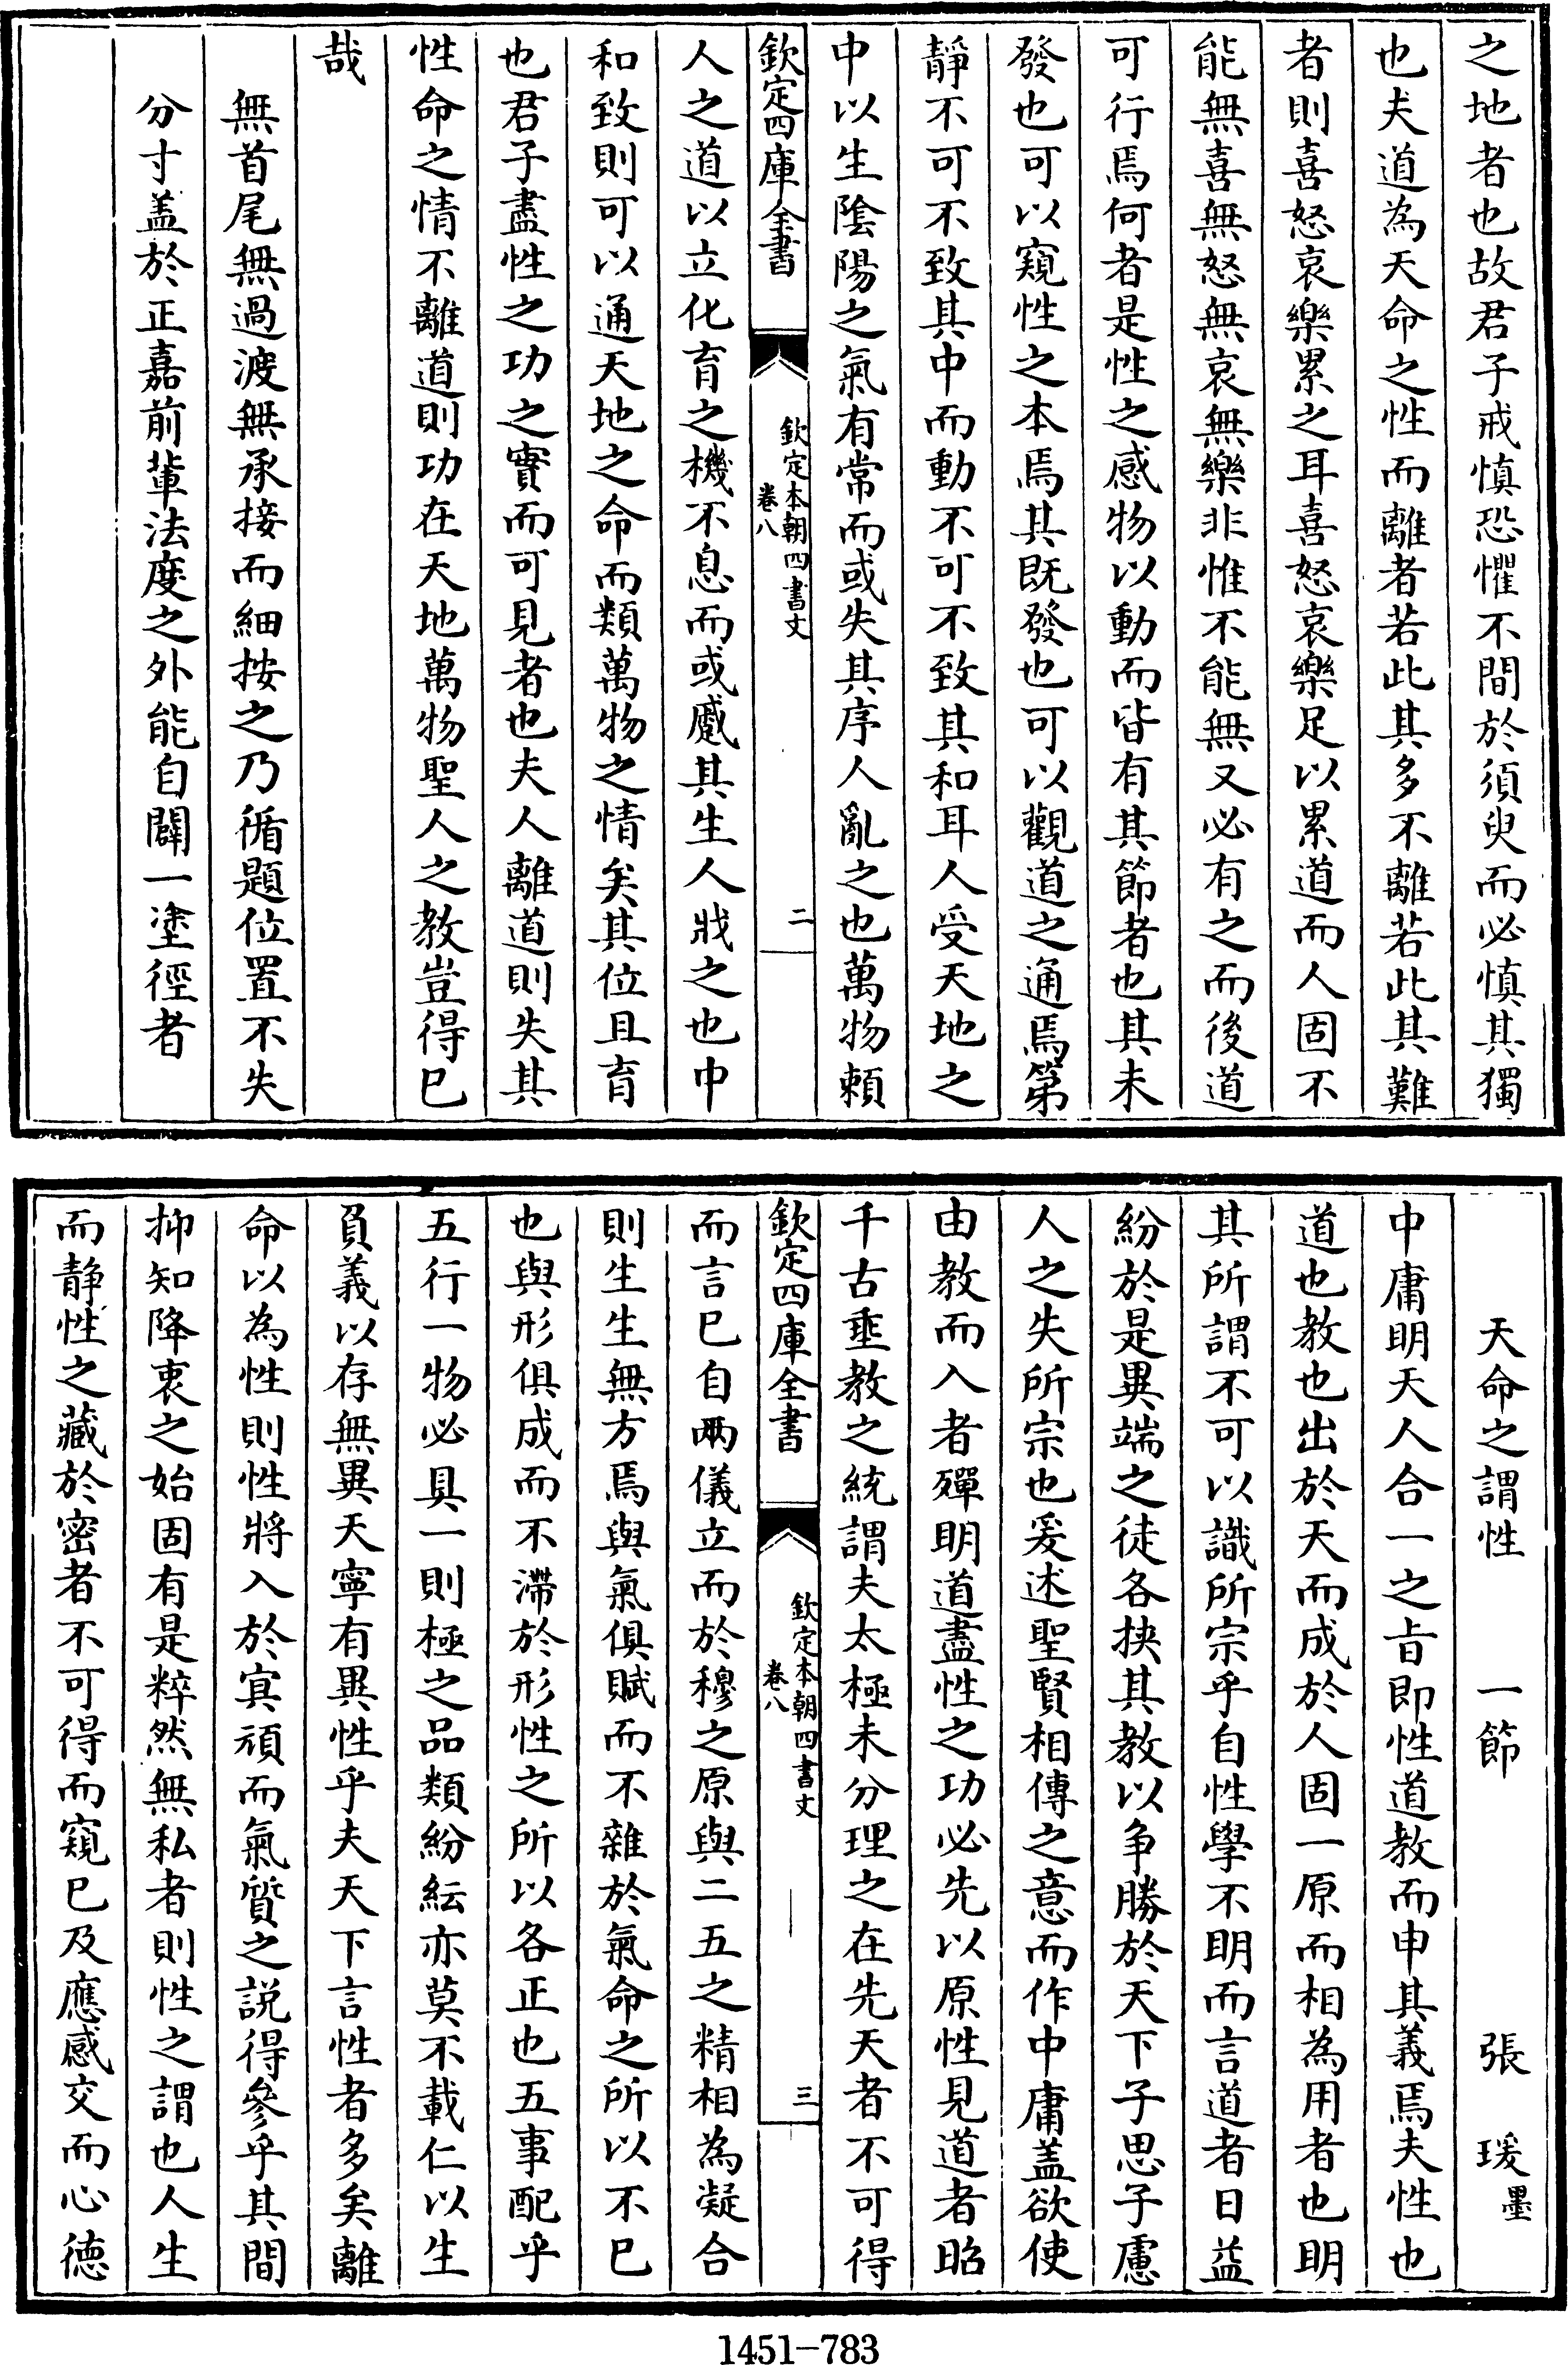 之地者也故君子戒慎恐懼不間於須臾而必慎其獨
也夫道為天命之性而離者若此其多不離若此其難
者則喜怒哀樂累之耳喜怒哀樂足以累道而人固不
能無喜無怒無哀無樂非惟不能無又必有之而後道
可行焉何者是性之感物以動而皆有其節者也其未
發也可以窺性之本焉其既發也可以觀道之通焉第
靜不可不致其中而動不可不致其和耳人受天地之
中以生陰陽之氣有常而或失其序人亂之也萬物賴
欽定四庫全書
欽定本朝四書文
卷八
二
人之道以立化育之機不息而或蹙其生人戕之也中
和致則可以通天地之命而類萬物之情矣其位且育
也君子盡性之功之實而可見者也夫人離道則失其
性命之情不離道則功在天地萬物聖人之教豈得已
哉
無首尾無過渡無承接而細按之乃循題位置不失
分寸盖於正嘉前輩法度之外能自闢一塗徑者
天命之謂性 一節 張瑗墨
中庸明天人合一之旨即性道教而申其義焉夫性也
道也教也出於天而成於人固一原而相為用者也明
其所謂不可以識所宗乎自性學不明而言道者日益
紛於是異端之徒各挾其教以争勝於天下子思子慮
人之失所宗也爰述聖賢相傳之意而作中庸盖欲使
由教而入者殫明道盡性之功必先以原性見道者昭
千古垂教之統謂夫太極未分理之在先天者不可得
欽定四庫全書
欽定本朝四書文
卷八
三
而言已自兩儀立而於穆之原與二五之精相為凝合
則生生無方焉與氣俱賦而不雜於氣命之所以不已
也與形俱成而不滯於形性之所以各正也五事配乎
五行一物必具一則極之品類紛紜亦莫不載仁以生
負義以存無異天寧有異性乎夫天下言性者多矣離
命以為性則性將入於寘頑而氣質之説得參乎其間
抑知降衷之始固有是粹然無私者則性之謂也人生
而靜性之藏於密者不可得而窺已及應感交而心德
1451-783